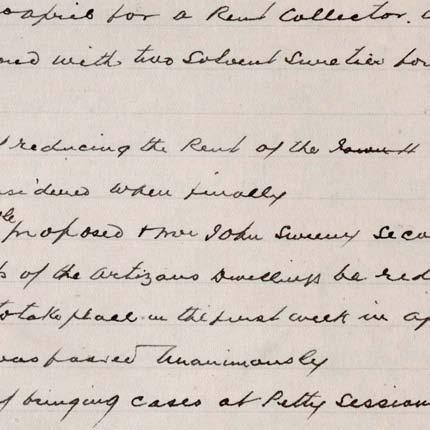 april for a Rent Collector.
with two Solvent Sureties for
reducing the Rent of the Town H
considered when finally
proposed & Mr John Sweeny Seco
of the Artizans Dwellings be red
to take place in the first week in ap
was passed Unanimously
of bringing cases at Petty Session